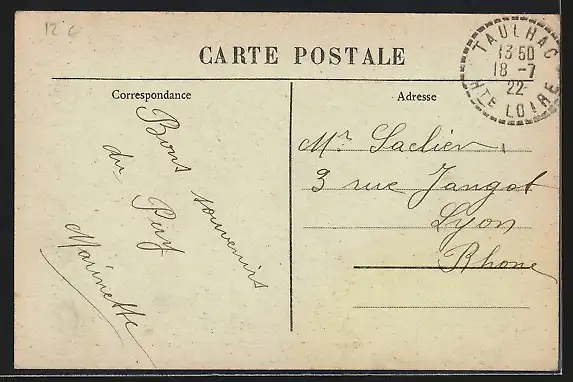 12 c
CARTE POSTALE
TAULHAC
13 50
18 -7
22
Hte LOIRE
Correspondance
Bons souvenirs
du Puy
Marinette
Adresse
Mr Saclier
3 rue Jangot
Lyon
Rhone